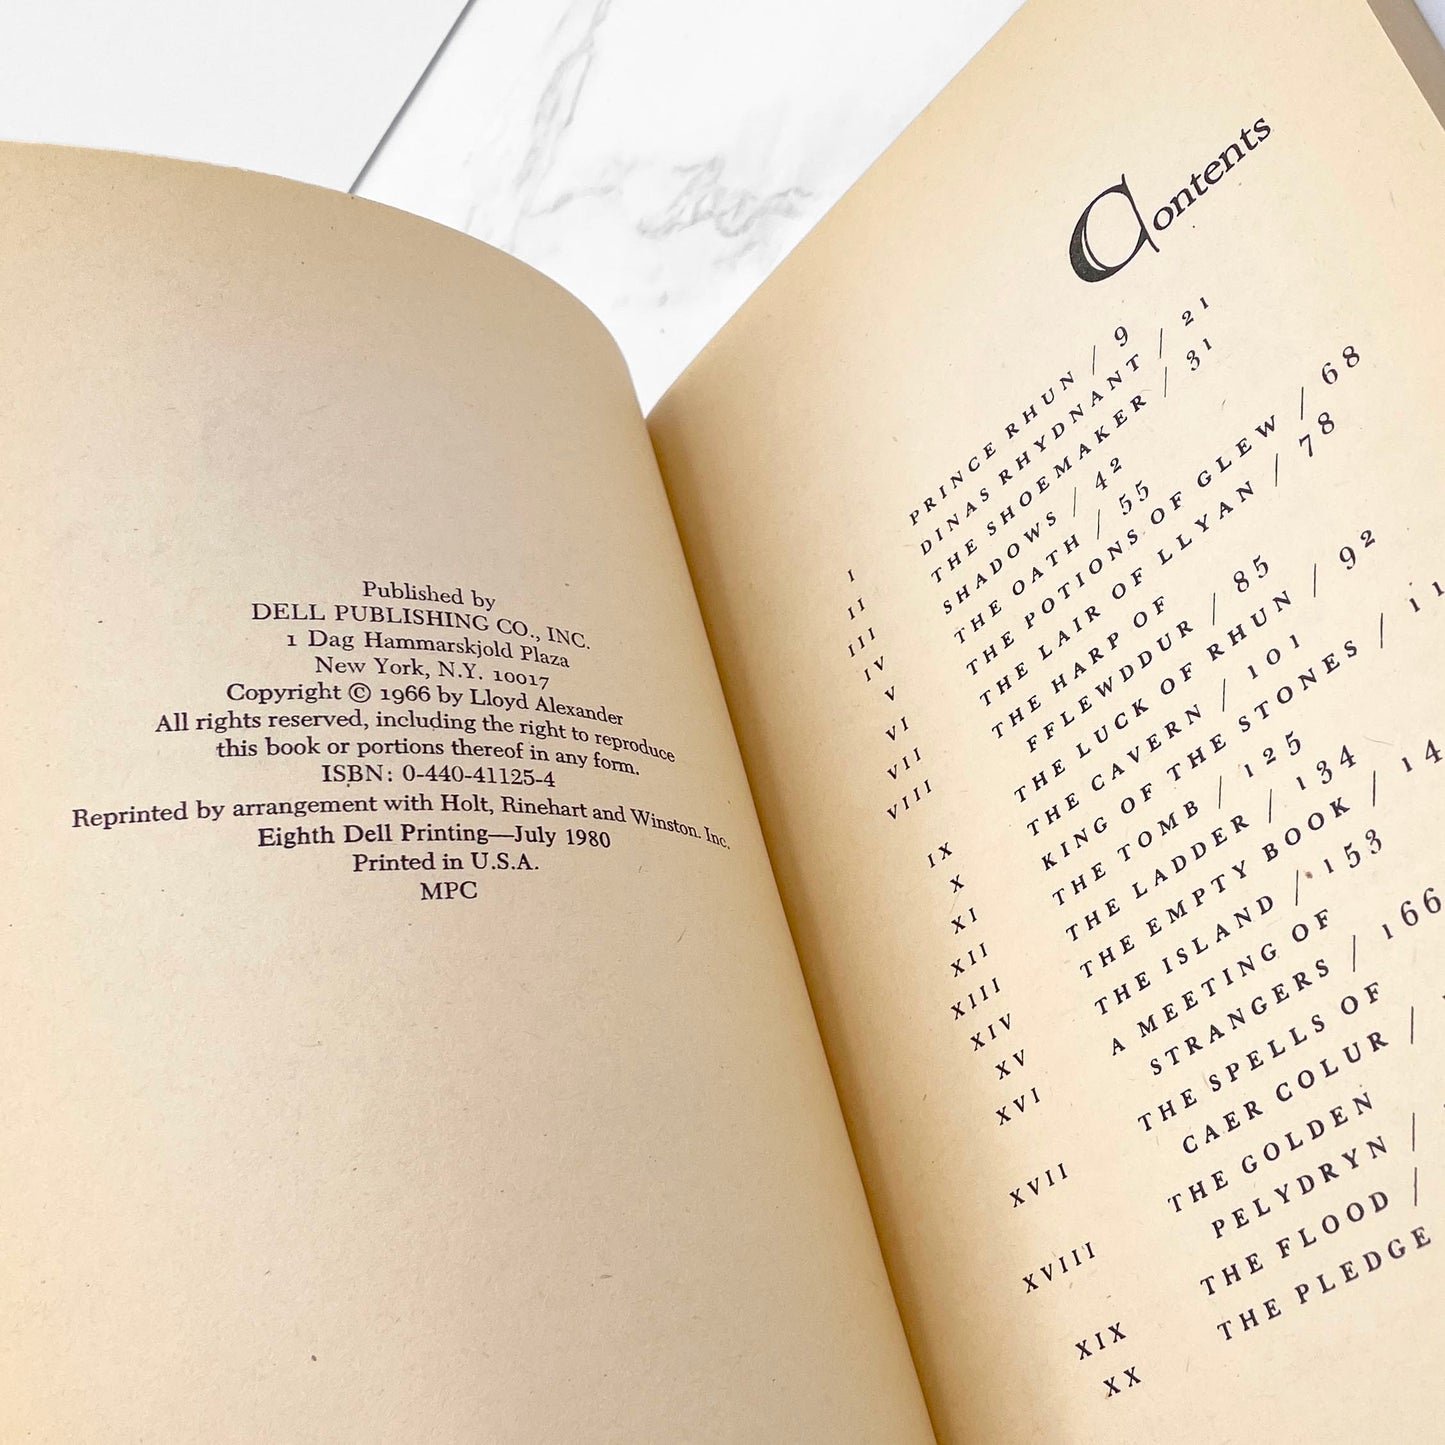 Published by
DELL PUBLISHING CO., INC.
1 Dag Hammarskjold Plaza
New York, N.Y. 10017
Copyright © 1966 by Lloyd Alexander
All rights reserved, including the right to reproduce
this book or portions thereof in any form.
ISBN: 0-440-41125-4
Reprinted by arrangement with Holt, Rinehart and Winston. Inc.
Eighth Dell Printing—July 1980
Printed in U.S.A.
MPC
Contents
I PRINCE RHUN / 9
II DINAS RHYDNANT / 21
III THE SHOEMAKER / 31
IV SHADOWS / 42
V THE OATH / 55
VI THE POTIONS OF GLEW / 68
VII THE LAIR OF LLYAN / 78
VIII THE HARP OF
FFLEWDDUR / 85
IX THE LUCK OF RHUN / 92
X THE CAVERN / 101
XI KING OF THE STONES / 11
XII THE TOMB / 125
XIII THE LADDER / 134
XIV THE EMPTY BOOK / 14
XV THE ISLAND / 153
XVI A MEETING OF
STRANGERS / 166
XVII THE SPELLS OF
CAER COLUR /
XVIII THE GOLDEN
PELYDRYN /
XIX THE FLOOD /
XX THE PLEDGE